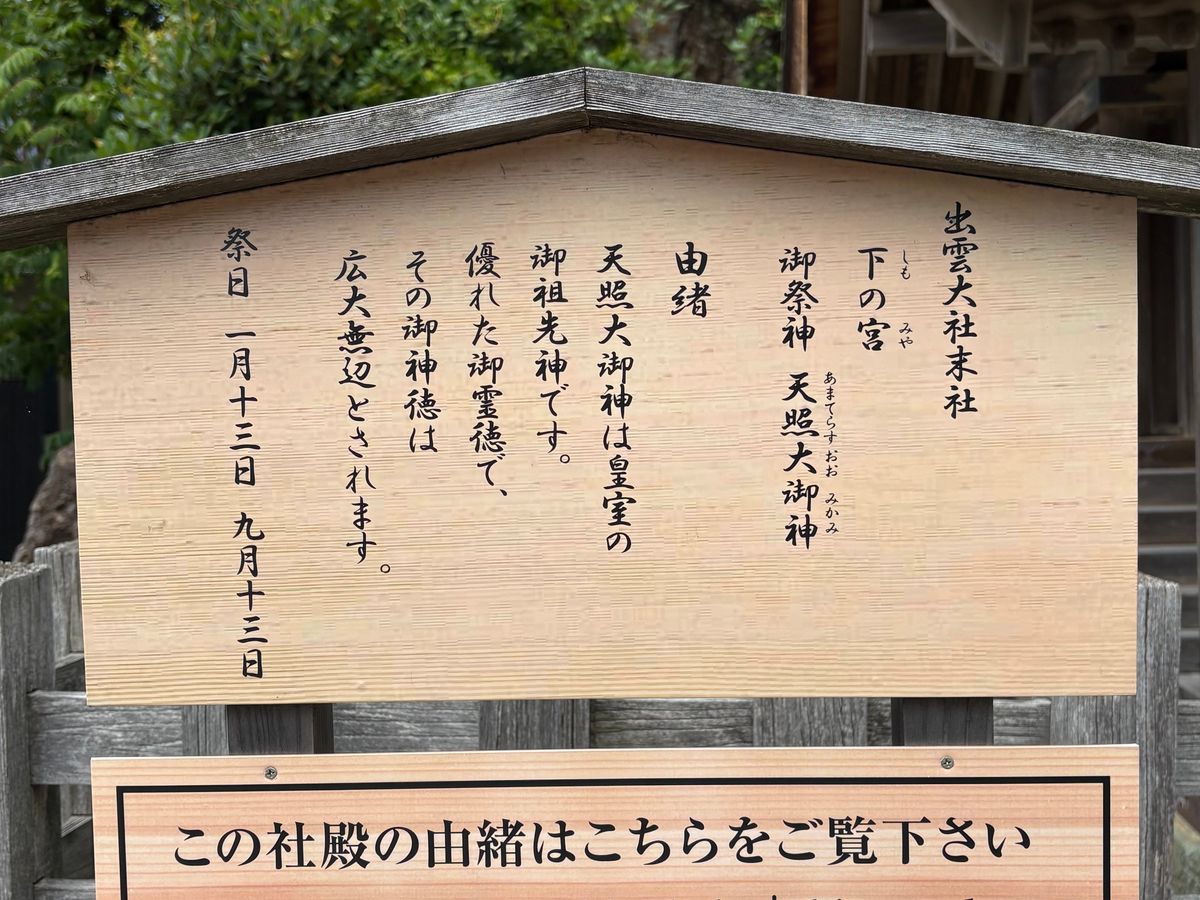 出雲大社末社
下の宮
しも みや
御祭神 天照大御神
あまてらす おお みかみ
由緒
天照大御神は皇室の
御祖先神です。
優れた御霊徳で、
その御神徳は
広大無辺とされます。
祭日 一月十三日 九月十三日
この社殿の由緒はこちらをご覧下さい